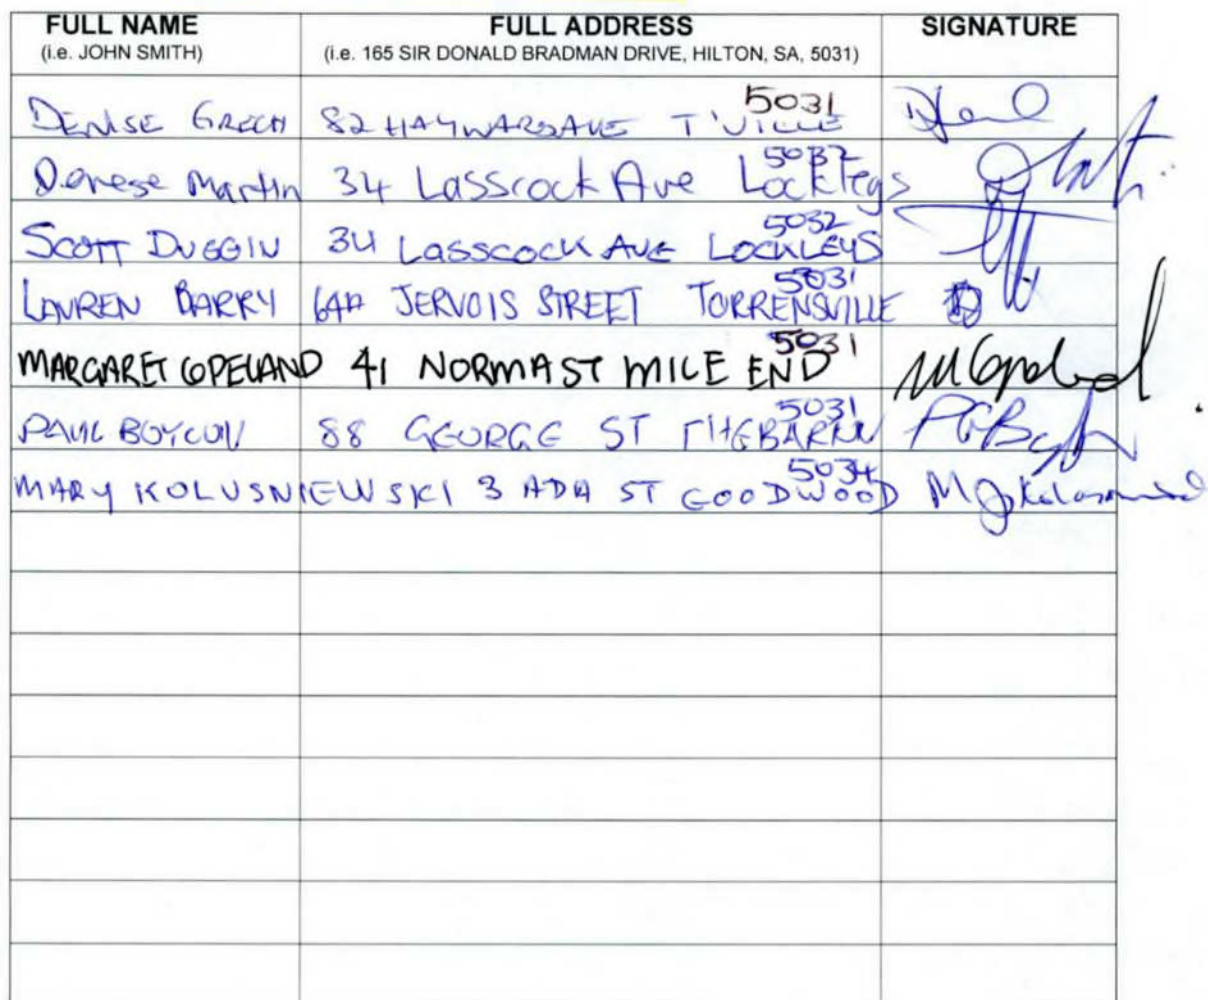 FULL NAME FULL ADDRESS SIGNATURE
(i.e. JOHN SMITH) (i.e. 165 SIR DONALD BRADMAN DRIVE, HILTON, SA, 5031)
DENISE GRECH 82 HAYWARD AVE T'VILLE 5031
Denese Martin 34 Lasscock Ave Lockleys 5032
SCOTT DUGGIN 34 LASSCOCK AVE LOCKLEYS 5032
LAUREN BARRY 64A JERVOIS STREET TORRENSVILLE 5031
MARGARET COPELAND 41 NORMA ST MILE END 5031
PAUL 88 GEORGE ST THEBARTON 5031
MARY KOLUSNIEWSKI 3 ADA ST GOODWOOD 5034